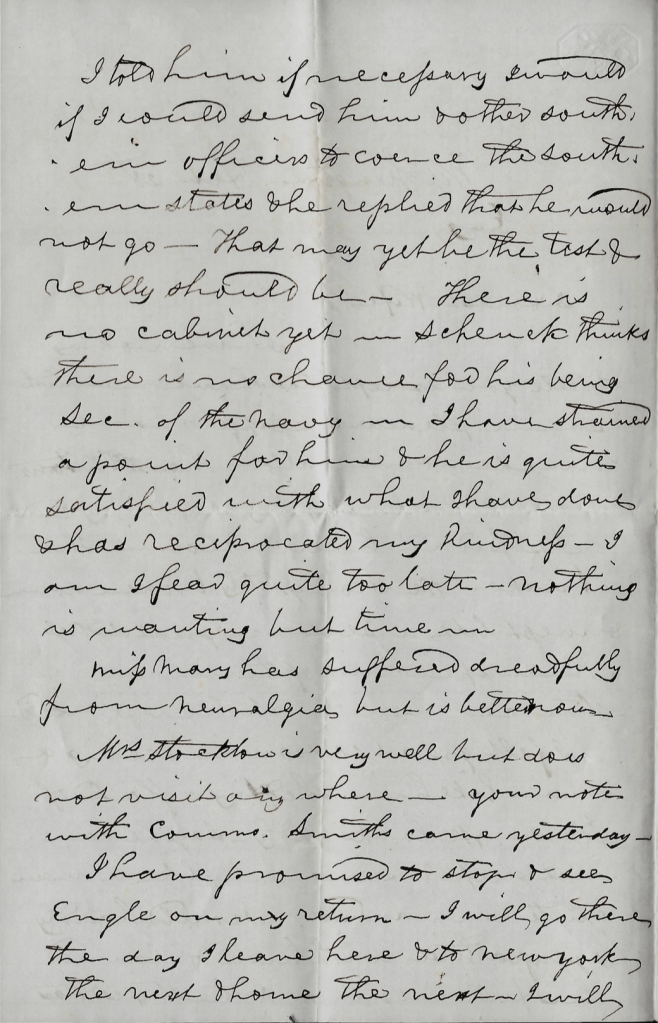 I told him if necessary I would
if I would send him & other south.
. ern officers to coerce the south.
. ern states & he replied that he would
not go — That may yet be the test &
really should be — There is
no cabinet yet — Schenck thinks
there is no chance for his being
Sec. of the navy — I have strained
a point for him & he is quite
satisfied with what I have done
& has reciprocated my kindness — I
am I fear quite too late — nothing
is wanting but time —
Miss Mary has suffered dreadfully
from neuralgia but is better now —
Mrs Stockton is very well but does
not visit any where — your note
with Commo. Smiths came yesterday —
I have promised to stop & see
Engle on my return — I will go there
the day I leave here & to new york
the next & home the next — I will